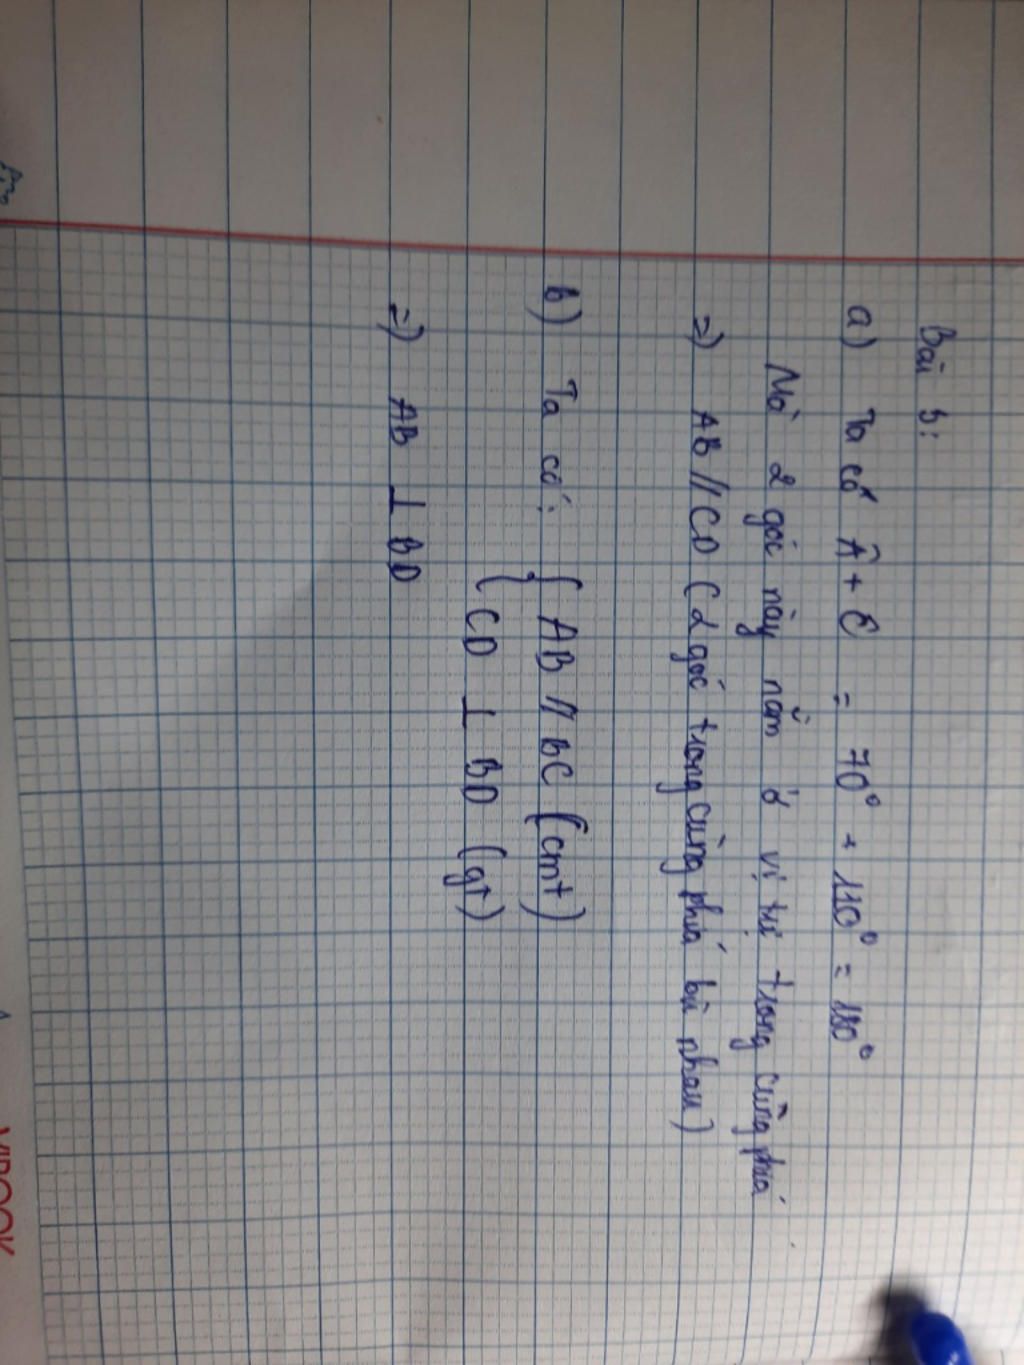 Bài 3:
a) Ta có Â + Ĉ = 70° + 110° = 180°
Mà 2 góc này nằm ở vị trí trong cùng phía
=) AB // CD (2 góc trong cùng phía bù nhau)
b) Ta có: { AB // BC (cmt)
CD ⊥ BD (gt)
=) AB ⊥ BD